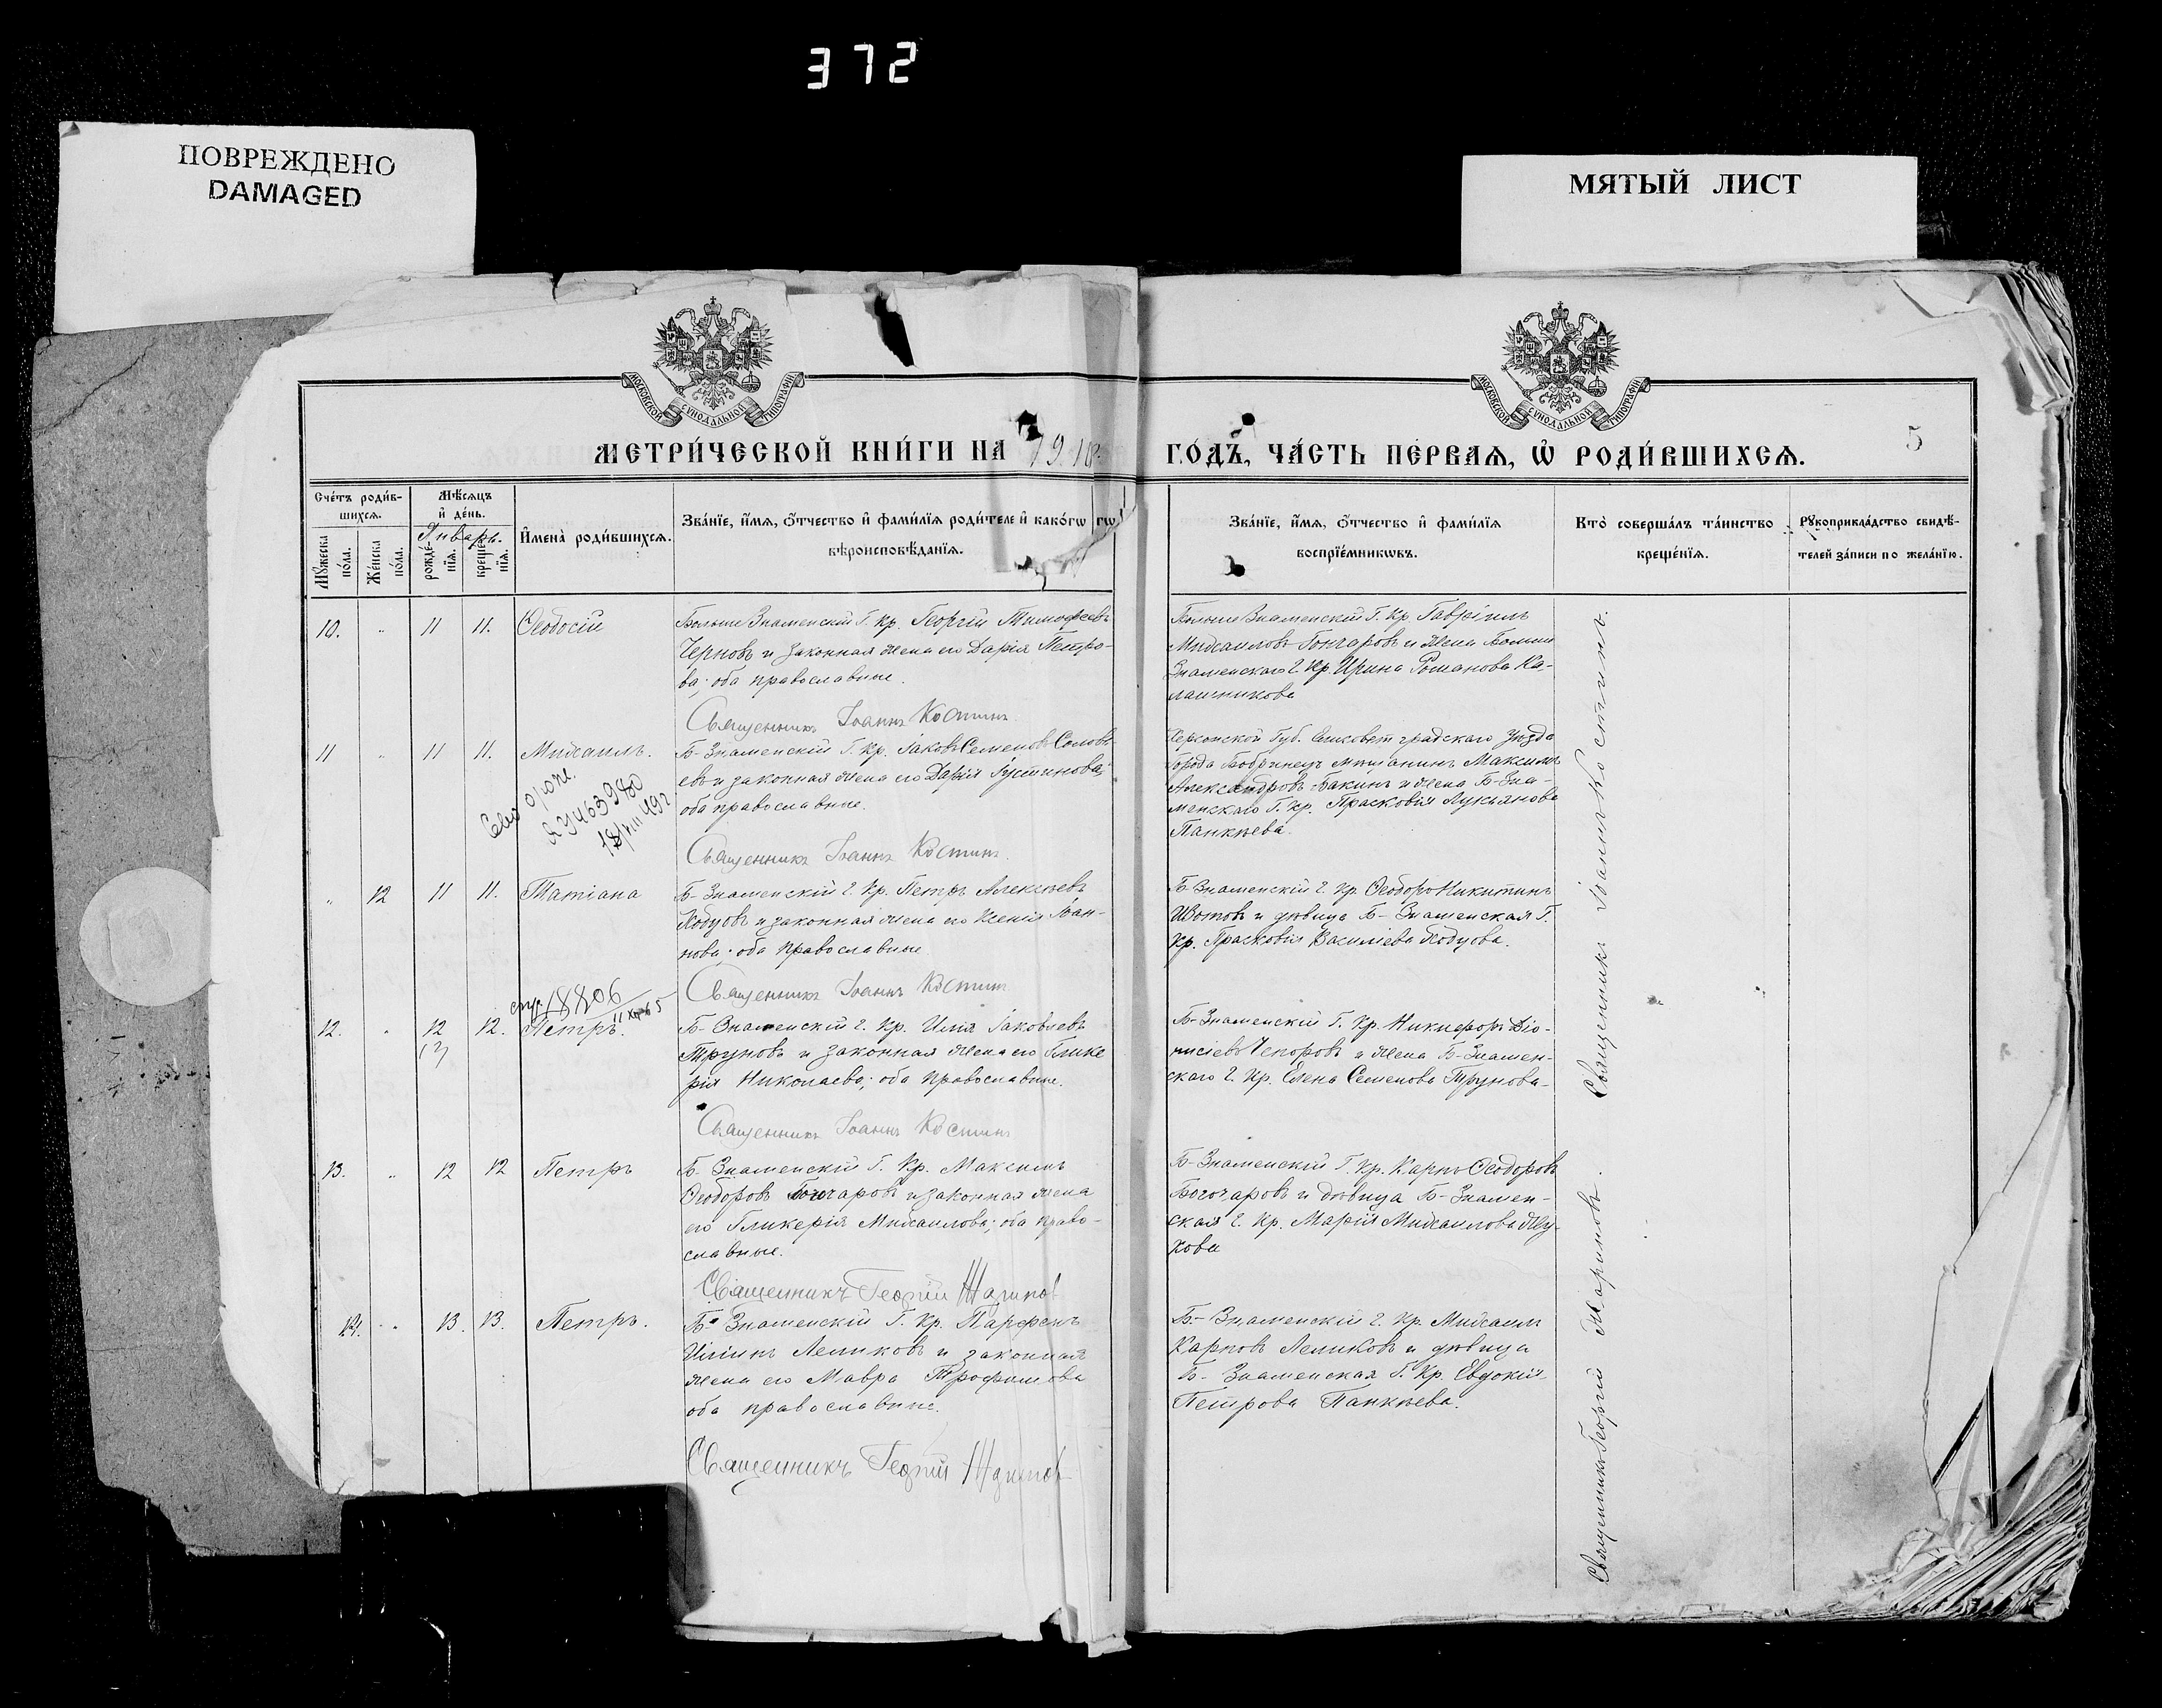 372
ПОВРЕЖДЕНО
DAMAGED
МЯТЫЙ ЛИСТ
МОСКОВСКОЙ СѴНОДАЛЬНОЙ ТИПОГРАФІИ
МОСКОВСКОЙ СѴНОДАЛЬНОЙ ТИПОГРАФІИ
МЕТРИ́ЧЕСКОЙ КНИ́ГИ НА 1910
ГО́ДЪ, ЧА́СТЬ ПЕ́РВАЯ, Ѡ҆ РОДИ́ВШИХСЯ.
5
Сче́тъ роди́в-
шихся.
Мѣ́сяцъ
и҆ де́нь.
Январь.
Мꙋ́жеска
по́ла.
Же́нска
по́ла.
рожде́-
нїя.
креще́-
нїя.
И҆мена̀ роди́вшихся.
Зва́нїе, и҆́мя, ѻ҆́тчество и҆ фами́лїя роди́теле и҆ како́гѡ гѡ
вѣроисповѣ́данїя.
Зва́нїе, и҆́мя, ѻ҆́тчество и҆ фами́лїя
воспрїе́мникѡвъ.
Кто̀ соверша́лъ та́инство
креще́нїя.
Рꙋкоприкла́дство свидѣ́-
телей за́писи по жела́нїю.
10. " 11 11. Ѳеодосій
Больше Знаменскій Г. Кр. Георгій Тимофеевъ
Черновъ и законная жена его Дарія Петро-
ва; оба православные.
Священникъ Іоаннъ Костинъ
Больше Знаменскій Г. Кр. Гавріилъ
Михаиловъ Гончаровъ и жена Больше
Знаменскаго Г. Кр. Ирина Романова Ка-
лашникова
11 " 11 11. Михаилъ.
Б-Знаменскій Г. Кр. Іаковъ Семеновъ Соловь-
евъ и законная жена его Дарія Іустинова;
оба православные.
Священникъ Іоаннъ Костинъ.
Херсонской Губ. Елисоветградскаго Уѣзда
города Бобринецъ мѣщанинъ Максимъ
Александровъ Бакинъ и жена Б-Зна-
менскаго Г. Кр. Прасковія Лукьянова
Панкѣева.
" 12 11 11. Татіана
Б-Знаменскій Г. Кр. Петръ Алексѣевъ
и законная жена его Ксенія Іоан-
нова; оба православные.
Священникъ Іоаннъ Костинъ
Б-Знаменскій Г. Кр. Ѳеодоръ Никитинъ
и дѣвица Б-Знаменская Г.
Кр. Прасковія Василіева
18806
12. " 12 12. Петръ.
Б-Знаменскій Г. Кр. Илія Іаковлевъ
Труновъ и законная жена его Глике
рія Николаева; оба православные.
Священникъ Іоаннъ Костинъ
Б-Знаменскій Г. Кр. Никифоръ Діо-
нисіевъ Чепоровъ и жена Б-Знамен-
скаго Г. Кр. Елена Семенова Трунова
13. " 12 12 Петръ
Б-Знаменскій Г. Кр. Максимъ
Ѳеодоровъ Гончаровъ и законная жена
его Гликерія Михаилова; оба право-
славные.
Священникъ Георгій
Б-Знаменскій Г. Кр. Карпъ Ѳеодоровъ
и дѣвица Б-Знамен-
ская Г. Кр. Марія Михаилова Жу-
кова
14. " 13. 13. Петръ.
Б-Знаменскій Г. Кр. Парфенъ
Иліинъ Лемиковъ и законная
жена его Мавра Трофимова
оба православные.
Священникъ Георгій
Б-Знаменскій Г. Кр. Михаилъ
Карповъ Лемиковъ и дѣвица
Б-Знаменская Г. Кр. Евдокія
Петрова Панкѣева.
Священникъ Іоаннъ Костинъ.
Священникъ Георгій